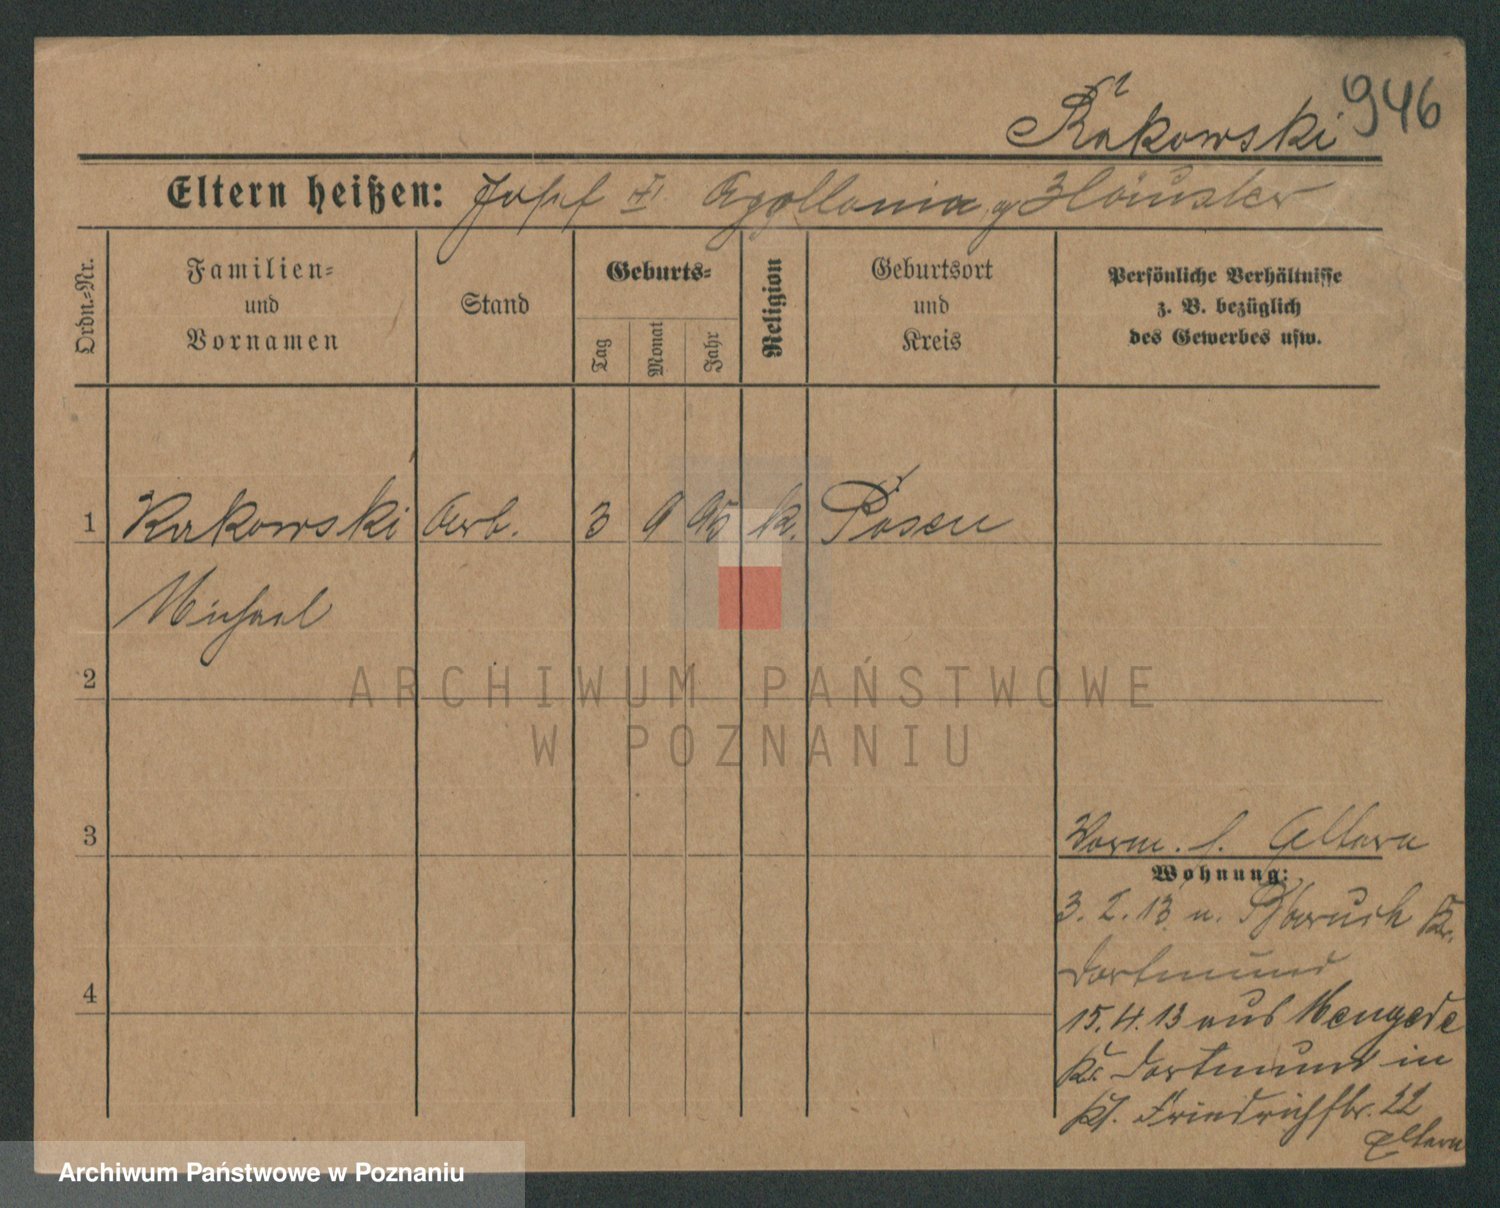 Rakowski 946
Eltern heißen: Josef u. Apollonia g.
Ordn.-Nr.
Familien-
und
Vornamen
Stand
Geburts-
Tag
Monat
Jahr
Religion
Geburtsort
und
Kreis
Persönliche Verhältnisse
z. B. bezüglich
des Gewerbes usw.
1 Rakowski Arb. 3 9 95 k. Posen
Michael
2
ARCHIWUM PAŃSTWOWE
W POZNANIU
3
Vorm. s. Eltern
Wohnung:
3. 2. 13 n. Kr.
Dortmund
4
15. 4. 13 aus Mengede
Kr. Dortmund in
Friedrichstr. 22
Eltern
Archiwum Państwowe w Poznaniu